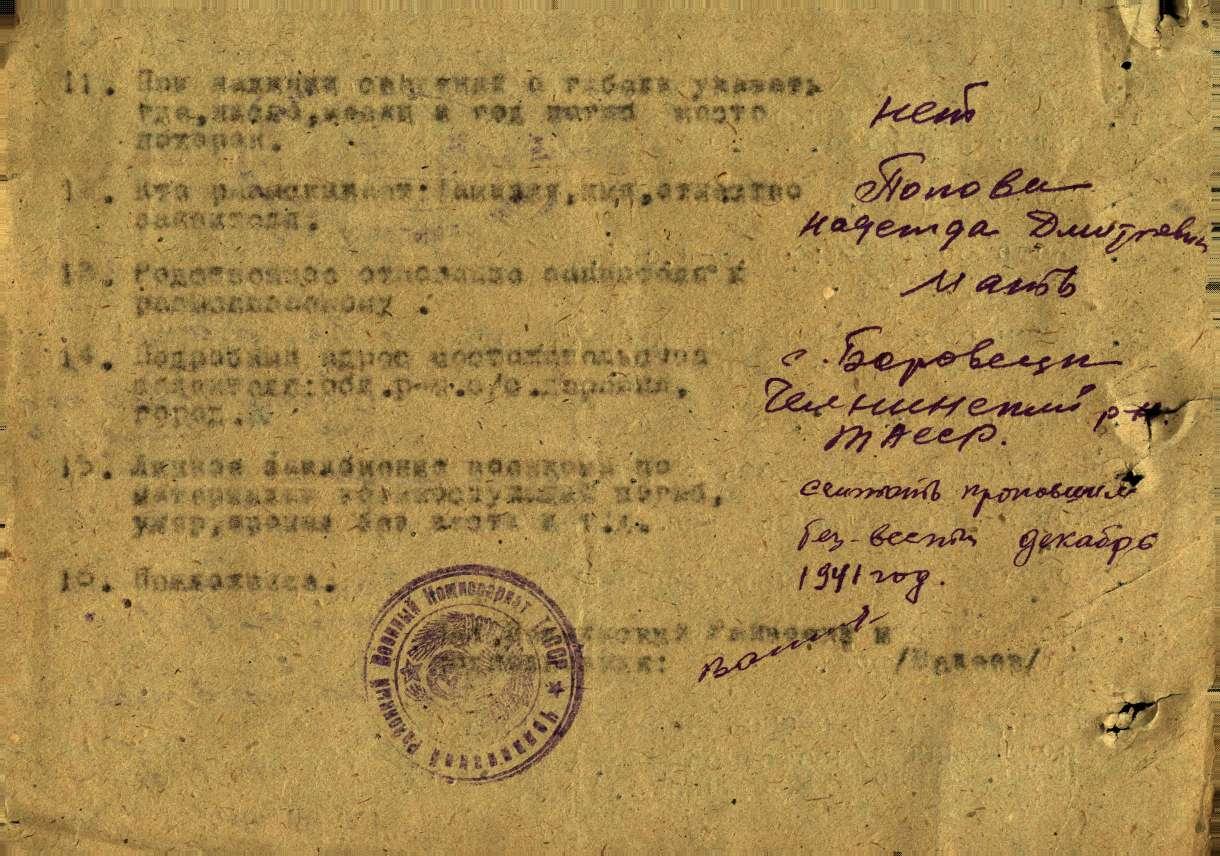 11. При наличии сведений о гибели указать нет
где, число, месяц и год погиб место
похорон.
12. Кто разыскивает: Фамилия, имя, отчество Попова
заявителя. Надежда Дмитриевн
13. Родственное отношение заявителя к мать
разыскиваемому.
14. Подробный адрес местожительства с. Боровецк
заявителя: обл. р-н. с/с. деревня, Челнинский р-н.
город. ТАССР.
15. Личное заключение военкома по
материалам погиб, считать пропавшим
умер, пропал без вести и т.д. без-вести декабрь
16. 1941 год.
Районный Военный Комиссариат ТАССР ★ Челнинский ★
Райвоенком